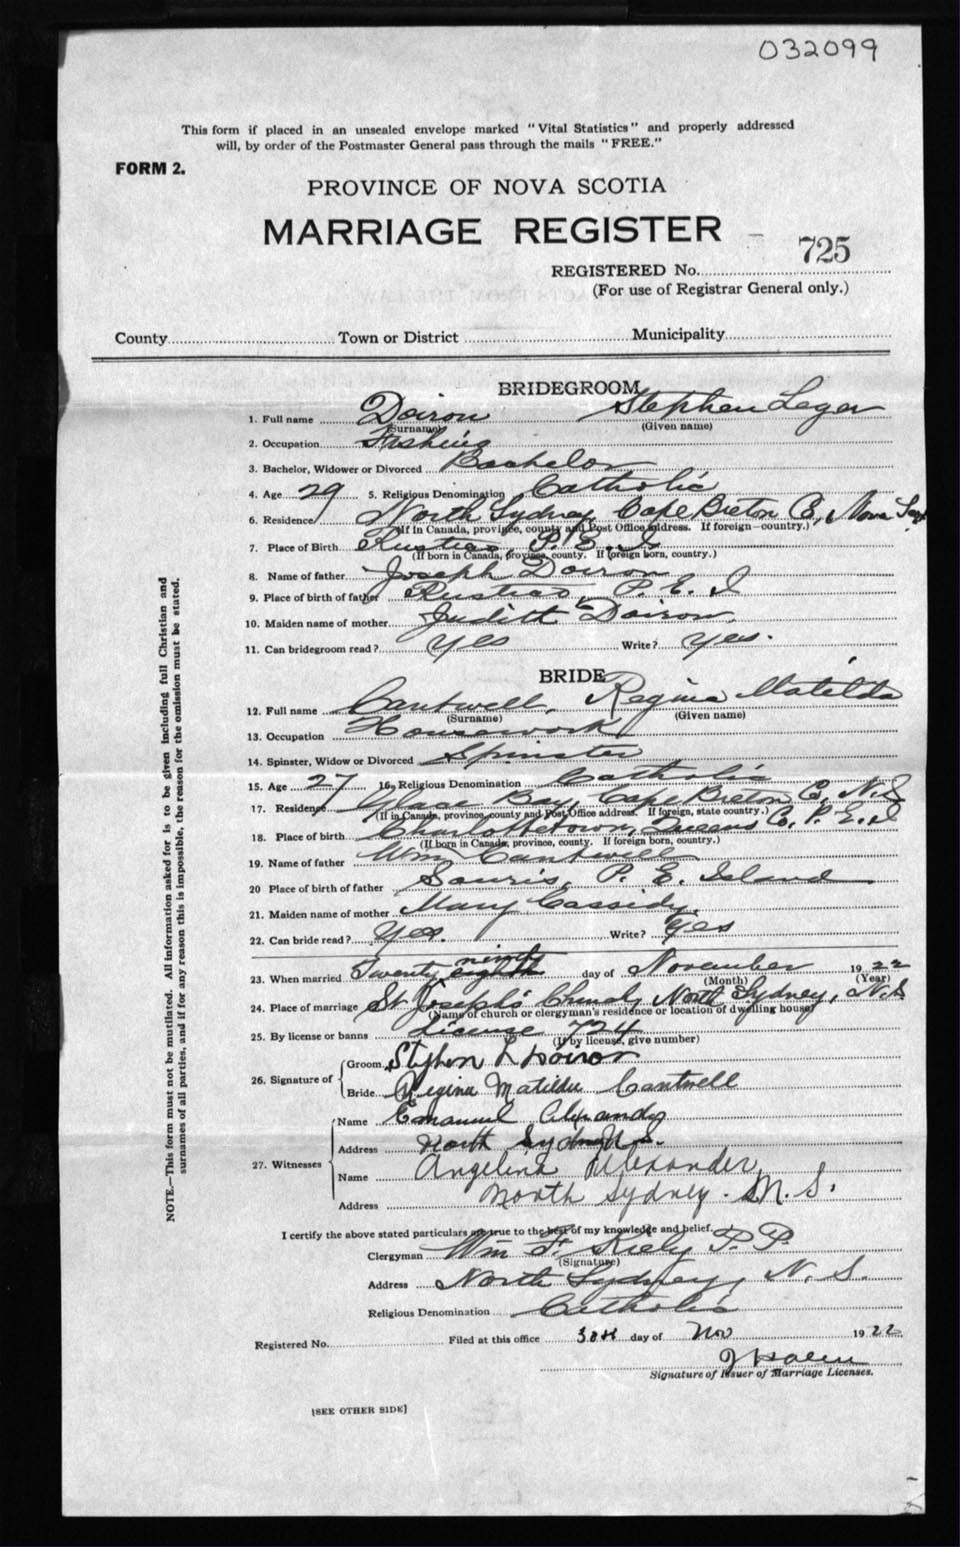 032099
This form if placed in an unsealed envelope marked "Vital Statistics" and properly addressed
will, by order of the Postmaster General pass through the mails "FREE."
FORM 2.
PROVINCE OF NOVA SCOTIA
MARRIAGE REGISTER
725
REGISTERED No.
(For use of Registrar General only.)
County Town or District Municipality
BRIDEGROOM
1. Full name Doiron Stephen Leger
(Surname) (Given name)
2. Occupation Fishing
3. Bachelor, Widower or Divorced Bachelor
4. Age 29 5. Religious Denomination Catholic
6. Residence North Sydney, Cape Breton Co, Nova
(If in Canada, province, county and Post Office address. If foreign—country.)
7. Place of Birth Rustico, P. E. I.
(If born in Canada, province, county. If foreign born, country.)
8. Name of father Joseph Doiron
9. Place of birth of father Rustico, P. E. I
10. Maiden name of mother Judith Doiron
11. Can bridegroom read? Yes Write? Yes.
BRIDE
12. Full name Cantwell, Regina Matilda
(Surname) (Given name)
13. Occupation Housework
14. Spinster, Widow or Divorced Spinster
15. Age 27 16. Religious Denomination Catholic
17. Residence Glace Bay, Cape Breton Co, N.S
(If in Canada, province, county and Post Office address. If foreign, state country.)
18. Place of birth Charlottetown, Queens Co. P. E. I
(If born in Canada, province, county. If foreign born, country.)
19. Name of father Wm. Cantwell
20 Place of birth of father Souris, P. E. Island
21. Maiden name of mother Mary Cassidy.
22. Can bride read? Yes. Write? Yes
23. When married Twenty eighth ninth day of November 1922
(Month) (Year)
24. Place of marriage St. Joseph's Church, North Sydney, N.S
(Name of church or clergyman's residence or location of dwelling house)
25. By license or banns License 724
(If by license, give number)
26. Signature of Groom Stephen L Doiron
Bride Regina Matilda Cantwell
27. Witnesses Name Emanuel
Address North Sydney N.S.
Name Angelina Alexander,
Address North Sydney. N. S.
I certify the above stated particulars are true to the best of my knowledge and belief.
Clergyman Wm F. Kiely P. P.
(Signature)
Address North Sydney, N. S.
Religious Denomination Catholic
Registered No. Filed at this office 30th day of Nov 1922
Signature of Issuer of Marriage Licenses.
[SEE OTHER SIDE]
NOTE.—This form must not be mutilated. All information asked for is to be given including full Christian and
surnames of all parties, and if for any reason this is impossible, the reason for the omission must be stated.